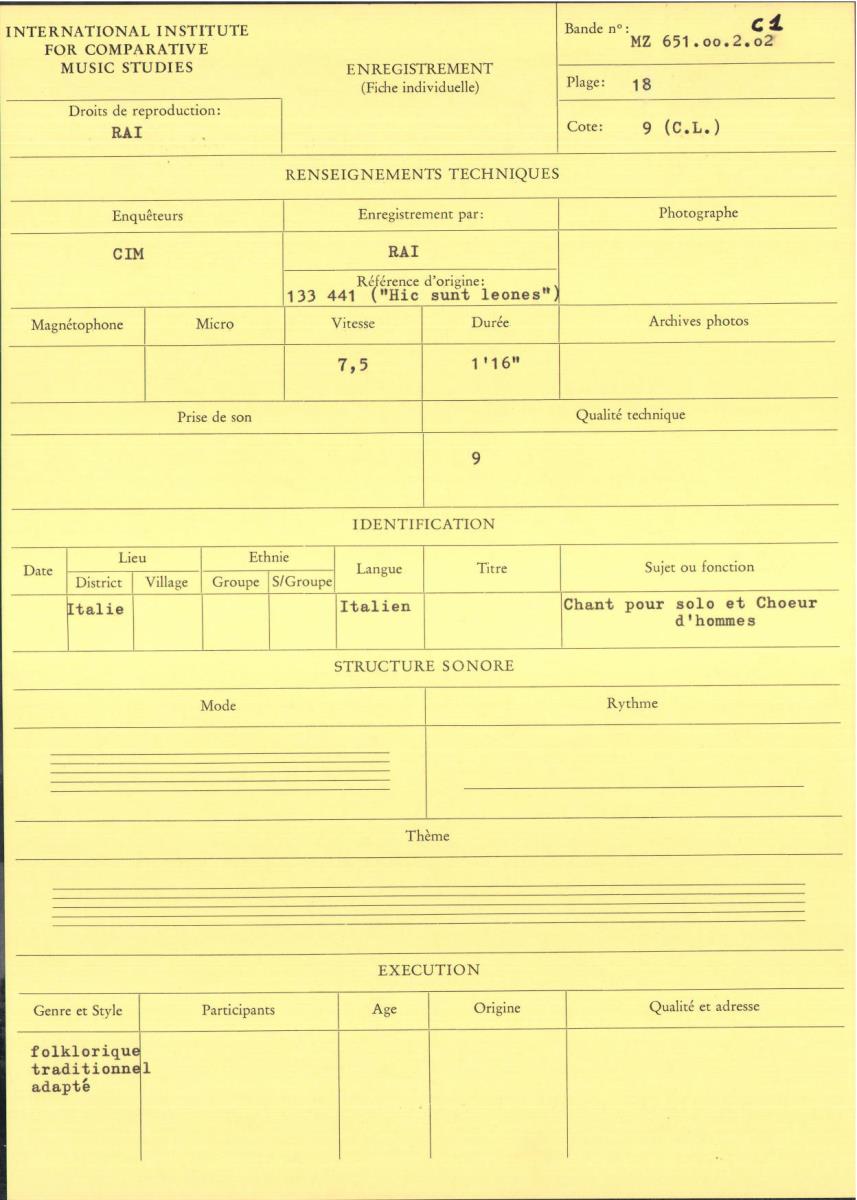 INTERNATIONAL INSTITUTE
FOR COMPARATIVE
MUSIC STUDIES
Droits de reproduction:
RAI
ENREGISTREMENT
(Fiche individuelle)
Bande nº: C1
MZ 651.oo.2.o2
Plage: 18
Cote: 9 (C.L.)
RENSEIGNEMENTS TECHNIQUES
Enquêteurs
Enregistrement par:
Photographe
CIM
RAI
Référence d'origine:
133 441 ("Hic sunt leones")
Magnétophone
Micro
Vitesse
Durée
Archives photos
7,5
1'16"
Prise de son
Qualité technique
9
IDENTIFICATION
Date
Lieu
District
Village
Ethnie
Groupe
S/Groupe
Langue
Titre
Sujet ou fonction
Italie
Italien
Chant pour solo et Choeur
d'hommes
STRUCTURE SONORE
Mode
Rythme
Thème
EXECUTION
Genre et Style
Participants
Age
Origine
Qualité et adresse
folklorique
traditionnel
adapté